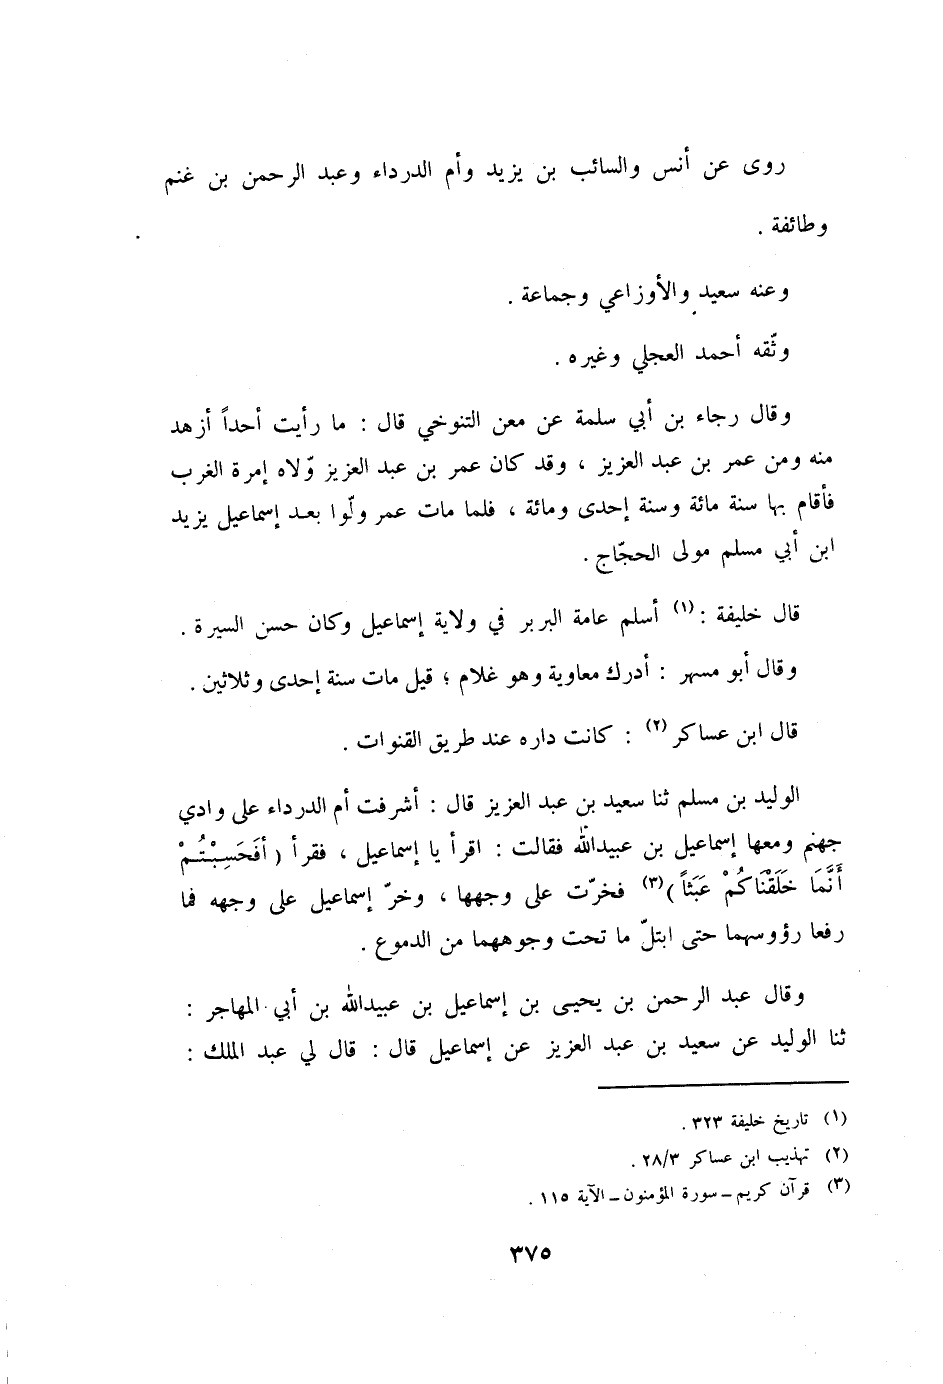 روى عن أنس والسائب بن يزيد وأم الدرداء وعبد الرحمن بن غنم
وطائفة .
وعنه سعيد والأوزاعي وجماعة .
وثّقه أحمد العجلي وغيره .
وقال رجاء بن أبي سلمة عن معن التنوخي قال : ما رأيت أحداً أزهد
منه ومن عمر بن عبد العزيز ، وقد كان عمر بن عبد العزيز ولّاه إمرة الغرب
فأقام بها سنة مائة وسنة إحدى ومائة ، فلما مات عمر ولّوا بعد إسماعيل يزيد
ابن أبي مسلم مولى الحجّاج .
قال خليفة :(١) أسلم عامة البربر في ولاية إسماعيل وكان حسن السيرة .
وقال أبو مسهر : أدرك معاوية وهو غلام ؛ قيل مات سنة إحدى وثلاثين .
قال ابن عساكر (٢) : كانت داره عند طريق القنوات .
الوليد بن مسلم ثنا سعيد بن عبد العزيز قال : أشرفت أم الدرداء على وادي
جهنم ومعها إسماعيل بن عبيدالله فقالت : اقرأ يا إسماعيل ، فقرأ ( أَفَحَسِبْتُمْ
أَنَّمَا خَلَقْنَاكُمْ عَبَثاً )(٣) فخرّت على وجهها ، وخرّ إسماعيل على وجهه فما
رفعا رؤوسهما حتى ابتلّ ما تحت وجوههما من الدموع .
وقال عبد الرحمن بن يحيى بن إسماعيل بن عبيدالله بن أبي المهاجر :
ثنا الوليد عن سعيد بن عبد العزيز عن إسماعيل قال : قال لي عبد الملك :
(١) تاريخ خليفة ٣٢٣ .
(٢) تهذيب ابن عساكر ٢٨/٣ .
(٣) قرآن كريم ــ سورة المؤمنون ــ الآية ١١٥ .
٣٧٥